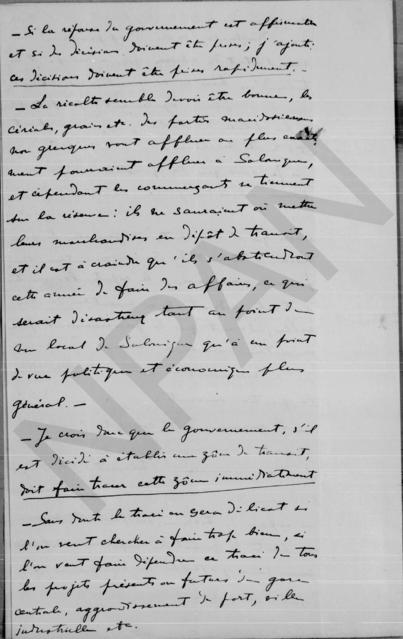 — Si la réponse du gouvernement est affirmative
et si des décisions doivent être prises; j'ajoute:
ces décisions doivent être prises rapidement. —
— La récolte semble devoir être bonne, les
céréales, grains etc. des parties macédoniennes
non grecques vont affluer ou plus
ment pourraient affluer à Salonique,
et cependant les commerçants se tiennent
sur la réserve: ils ne sauraient où mettre
leurs marchandises en dépôt de transit,
et il est à craindre qu'ils s'abstiendront
cette année de faire des affaires, ce qui
serait désastreux tant au point de
vue local de Salonique qu'à un point
de vue politique et économique plus
général. —
— Je crois donc que le gouvernement, s'il
est décidé à établir une zône de transit,
doit faire tracer cette zône immédiatement
— Sans doute le tracé en sera délicat si
l'on veut chercher à faire trop bien, si
l'on veut faire dépendre ce tracé de tous
les projets présents ou futurs d'une gare
centrale, agrandissement de port, ville
industrielle etc.
NPAN